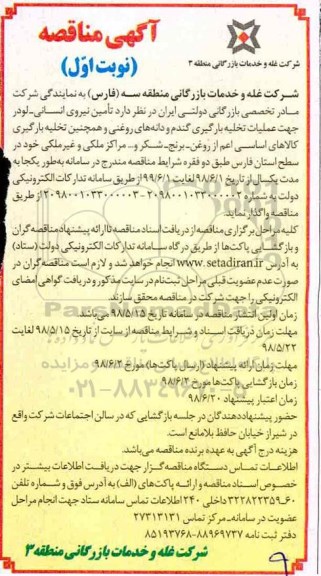 آگهی مناقصه
(نوبت اول)
شرکت غله و خدمات بازرگانی منطقه ۳
شرکت غله و خدمات بازرگانی منطقه سه (فارس) به نمایندگی شرکت
مادر تخصصی بازرگانی دولتی ایران در نظر دارد تأمین نیروی انسانی-لودر
جهت عملیات تخلیه بارگیری گندم و دانه‌های روغنی و همچنین تخلیه بارگیری
کالاهای اساسی اعم از روغن-برنج-شکر و... مراکز ملکی و غیرملکی خود در
سطح استان فارس طبق دو فقره شرایط مناقصه مندرج در سامانه به‌طور یکجا به
مدت یکسال از تاریخ ۹۸/۶/۱ لغایت ۹۹/۶/۱ از طریق سامانه تدارکات الکترونیکی
دولت به شماره ۲۰۹۸۰۰۱۰۳۳۰۰۰۰۰۲-۲۰۹۸۰۰۱۰۳۳۰۰۰۰۰۳ از طریق
مناقصه واگذار نماید.
کلیه مراحل برگزاری مناقصه از دریافت اسناد مناقصه تا ارائه پیشنهاد مناقصه‌گران
و بازگشایی پاکت‌ها از طریق درگاه سامانه تدارکات الکترونیکی دولت (ستاد)
به آدرس www.setadiran.ir انجام خواهد شد و لازم است مناقصه‌گران در
صورت عدم عضویت قبلی مراحل ثبت‌نام در سایت مذکور و دریافت گواهی امضای
الکترونیکی را جهت شرکت در مناقصه محقق سازند.
زمان اولین انتشار مناقصه در سامانه تاریخ ۹۸/۵/۱۵ می‌باشد.
مهلت زمان دریافت اسناد و شرایط مناقصه از سایت از تاریخ ۹۸/۵/۱۵ لغایت
۹۸/۵/۲۲
مهلت زمان ارائه پیشنهاد (ارسال پاکت‌ها) مورخ ۹۸/۶/۲
زمان بازگشایی پاکت‌ها مورخ ۹۸/۶/۲
زمان اعتبار پیشنهاد ۹۸/۶/۲۰
حضور پیشنهاددهندگان در جلسه بازگشایی که در سالن اجتماعات شرکت واقع
در شیراز خیابان حافظ بلامانع است.
هزینه درج آگهی به عهده برنده مناقصه می‌باشد.
اطلاعات تماس دستگاه مناقصه‌گزار جهت دریافت اطلاعات بیشتر در
خصوص اسناد مناقصه و ارائه پاکت‌های (الف) به آدرس فوق و شماره تلفن
۶۰-۳۲۲۸۲۲۳۵۹ داخلی ۲۴۰ اطلاعات تماس سامانه ستاد جهت انجام مراحل
عضویت در سامانه-مرکز تماس ۲۷۳۱۳۱۳۱
دفتر ثبت نامه ۸۸۹۶۹۷۳۷-۸۵۱۹۳۷۶۸
شرکت غله و خدمات بازرگانی منطقه ۳
۹